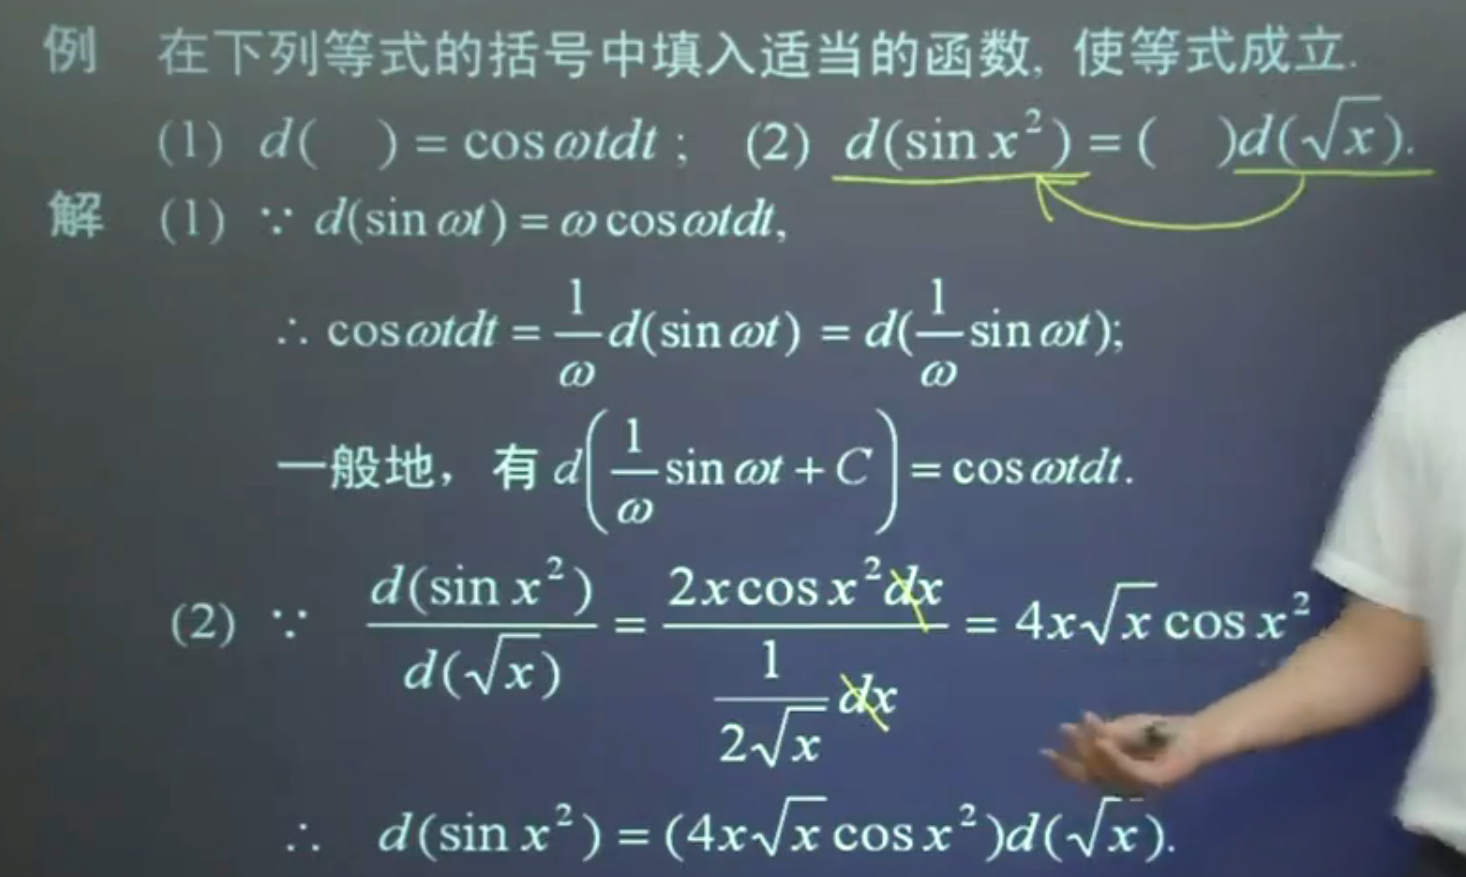 例 在下列等式的括号中填入适当的函数, 使等式成立.
(1) d( ) = cos ωtdt ; (2) d(sin x²) = ( )d(√x).
解 (1) ∵ d(sin ωt) = ω cos ωtdt,
∴ cos ωtdt = 1/ω d(sin ωt) = d(1/ω sin ωt);
一般地, 有 d(1/ω sin ωt + C) = cos ωtdt.
(2) ∵ d(sin x²)/d(√x) = 2x cos x² dx / (1/(2√x) dx) = 4x√x cos x²
∴ d(sin x²) = (4x√x cos x²)d(√x).